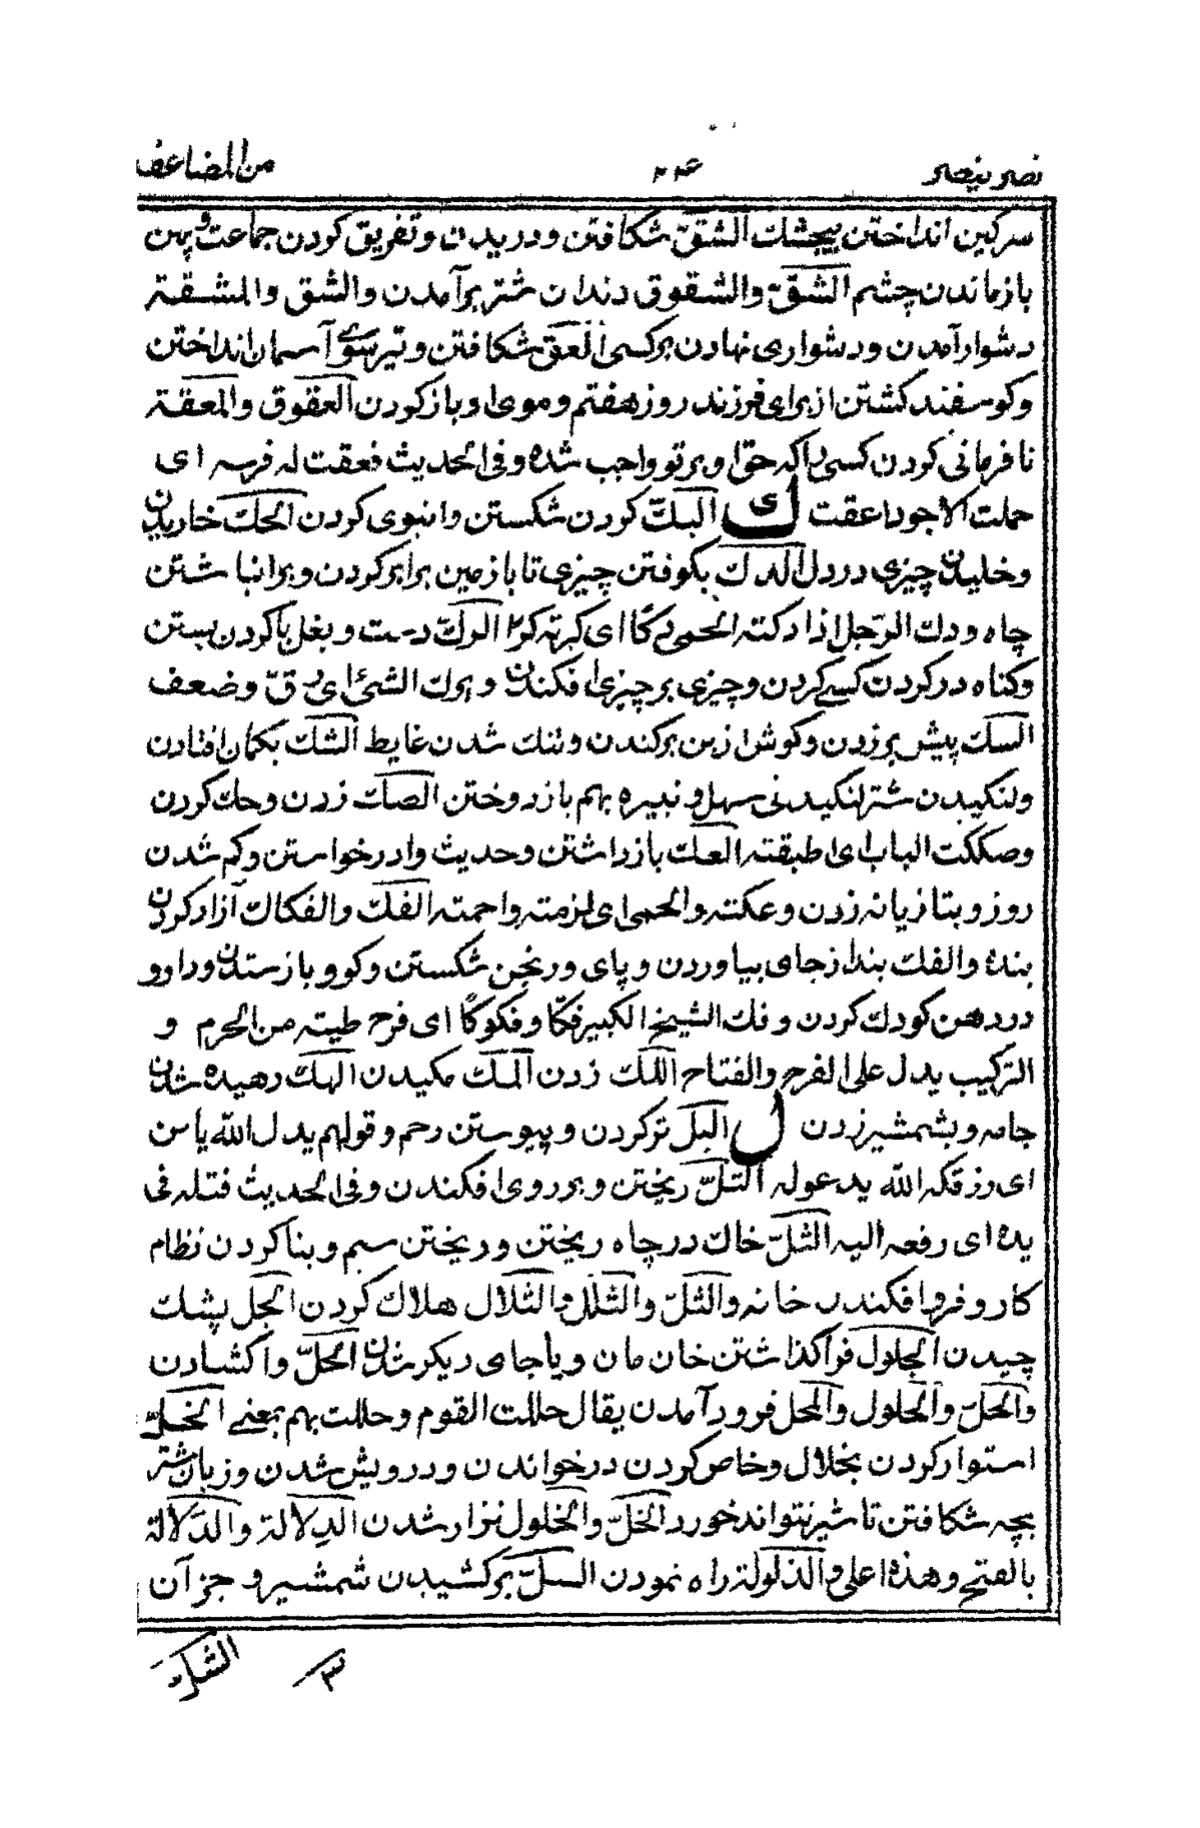 نصر ینصر ۲۲۶ من المضاعف
سرکین انداختن بجشك الشقّ شکافتن ودریدن وتفریق کردن جماعت وپهن
بازماندن چشم الشقّ والشقوق دندان شتر برآمدن والشق والمشقة
دشوار آمدن ودشواری نهادن برکسی العق شکافتن وتیر سوے آسمان انداختن
وکوسفند کشتن از برای فرزند روز هفتم وموی او باز کردن العقوق والمعقة
نافرمانی کردن کسی را که حق او بر تو واجب شده وفی الحدیث فعقت له فرسه ای
حملت الاجود اعقت ك البكّ کردن شکستن وانبوی کردن الحك خاریدن
وخلیدن چیزی در دل الدك بکوفتن چیزی تا با زمین برابر کردن وبرانباشتن
چاه ودك الرّجل اذا دكته الحمى دكًا ای کرته کرا الرك دست وبغل با کردن بستن
وکناه در کردن کسے کردن وچیزی بر چیزی افکندن ورك الشئ ای رقّ وضعف
السك پیش بر زدن وکوش از بن برکندن وتنك شدن غایط الشك بکمان افتادن
ولنکیدن شتر لنکیدنی سهل و نبیره بهم باز دوختن الصك زدن وحك کردن
وصككت الباب ای اطبقته العك بازداشتن وحدیث وادرخواستن وکم شدن
روز وبتازیانه زدن وعكته والحمى ای لزمته واحمته الفك والفكاك آزاد کردن
بنده والفك بند از جای بیاوردن وپای ورنجن شکستن وکرو بازستدن ودارو
در دهن کودك کردن وفك الشیخ الکبیر فكّا وفكوكًا ای فرح طیته من الحرم و
الترکیب یدل علی الفرج والفتاح اللك زدن المك مکیدن الهك رهیده شدن
جامه وبشمشیر زدن ل البل تر کردن وپیوستن رحم وقولهم یدل الله یاس
ای رزقکه الله یدعوله التلّ ریختن وبر روی افکندن وفی الحدیث فتله فی
یده ای رفعه الیه الثلّ خاك در چاه ریختن وریختن سیم وبنا کردن نظام
کار وفرو افکندن خانه والثلّ والثلل والثلال هلاك کردن الجل پشك
چیدن الجلول فرا گذاشتن خان مان وبا جای دیکر شدن الحلّ واکشادن
والحلّ والحلول والمحل فرود آمدن یقال حللت القوم وحللت بهم بمعنے الخلّ
استوار کردن بخلال وخاص کردن در خواندن ودرویش شدن وزبان شتر
بچه شکافتن تا شیر نتواند خورد الخلّ والخلول نزار شدن الدِلالة والدَلالة
بالفتح وهذه اعلى والدلولة راه نمودن السلّ برکشیدن شمشیر و جز آن
۳